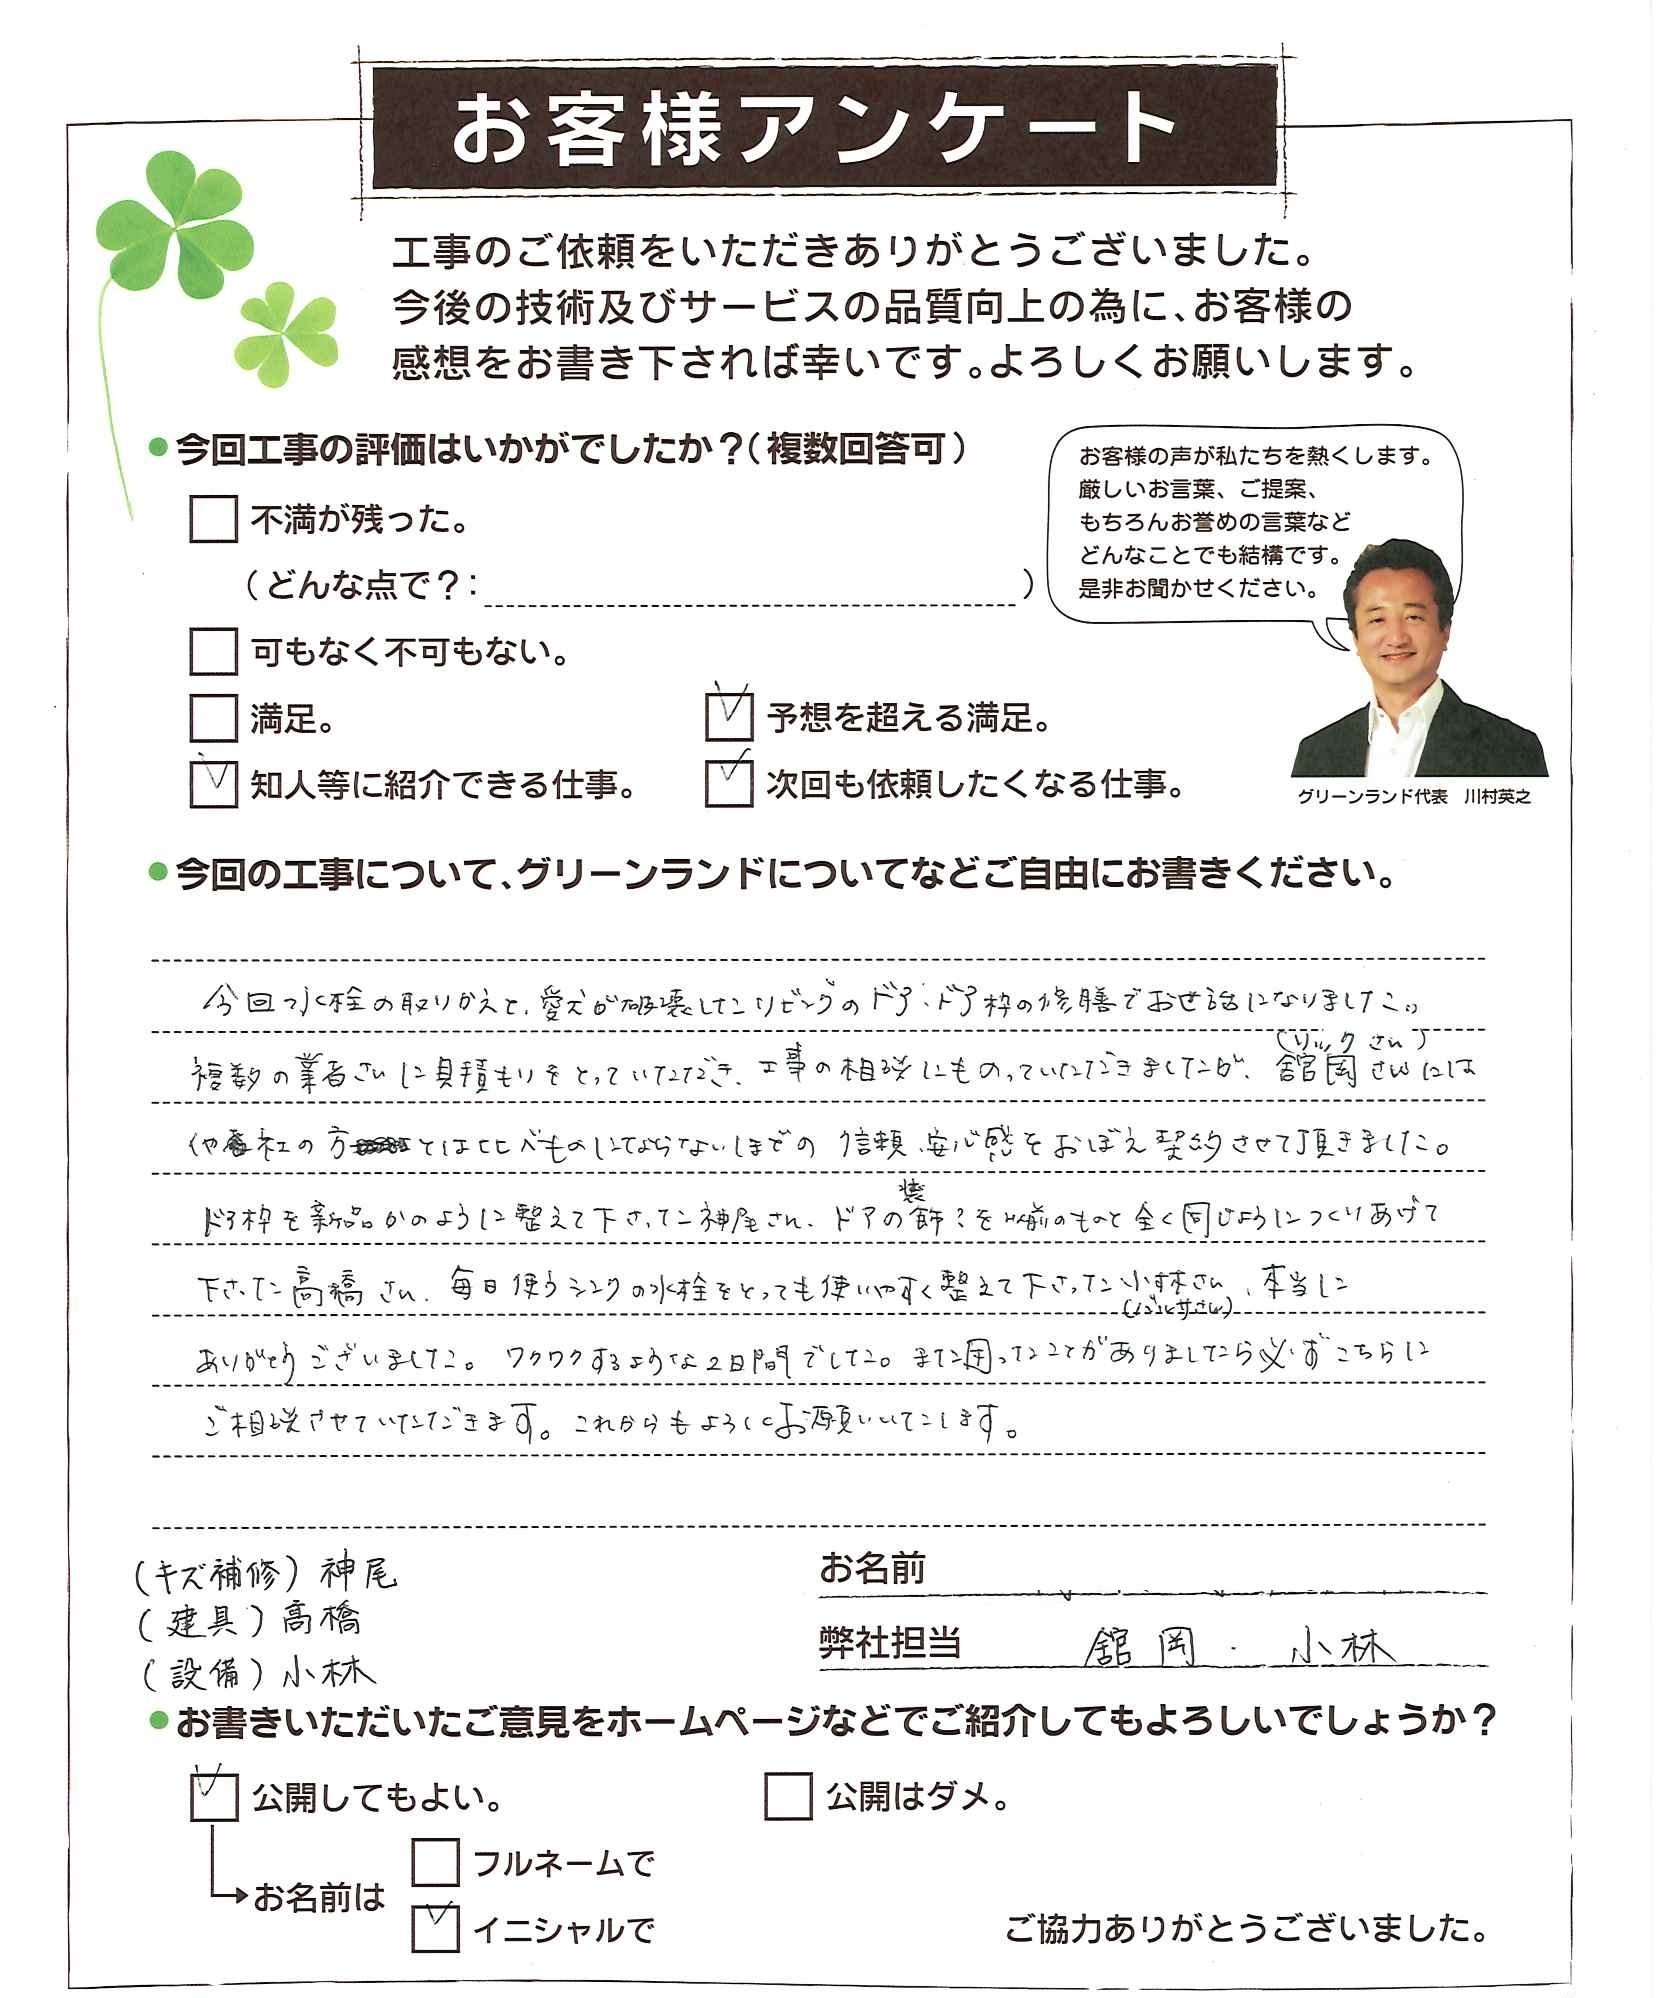 お客様アンケート
工事のご依頼をいただきありがとうございました。
今後の技術及びサービスの品質向上の為に、お客様の
感想をお書き下されば幸いです。よろしくお願いします。
●今回工事の評価はいかがでしたか？（複数回答可）
不満が残った。
（どんな点で？：　）
可もなく不可もない。
満足。
予想を超える満足。
知人等に紹介できる仕事。
次回も依頼したくなる仕事。
お客様の声が私たちを熱くします。
厳しいお言葉、ご提案、
もちろんお誉めの言葉など
どんなことでも結構です。
是非お聞かせください。
グリーンランド代表　川村英之
●今回の工事について、グリーンランドについてなどご自由にお書きください。
今回水栓の取りかえと、愛犬が破壊したリビングのドア・ドア枠の修膳でお世話になりました。
(リックさん)
複数の業者さんに見積もりをとっていただき、工事の相談にものっていただきましたが、舘岡さんには
他社の方とは比べものにならないほどの信頼、安心感をおぼえ契約させて頂きました。
ドア枠を新品かのように整えて下さった神尾さん、ドアの装飾を以前のものと全く同じようにつくりあげて
下さった高橋さん、毎日使うシンクの水栓をとっても使いやすく整えて下さった小林さん、本当に
ありがとうございました。ワクワクするような2日間でした。また困ったことがありましたら必ずこちらに
ご相談させていただきます。これからもよろしくお願いいたします。
(キズ補修) 神尾
(建具) 高橋
(設備) 小林
お名前
弊社担当　舘岡・小林
●お書きいただいたご意見をホームページなどでご紹介してもよろしいでしょうか？
公開してもよい。
公開はダメ。
お名前は
フルネームで
イニシャルで
ご協力ありがとうございました。